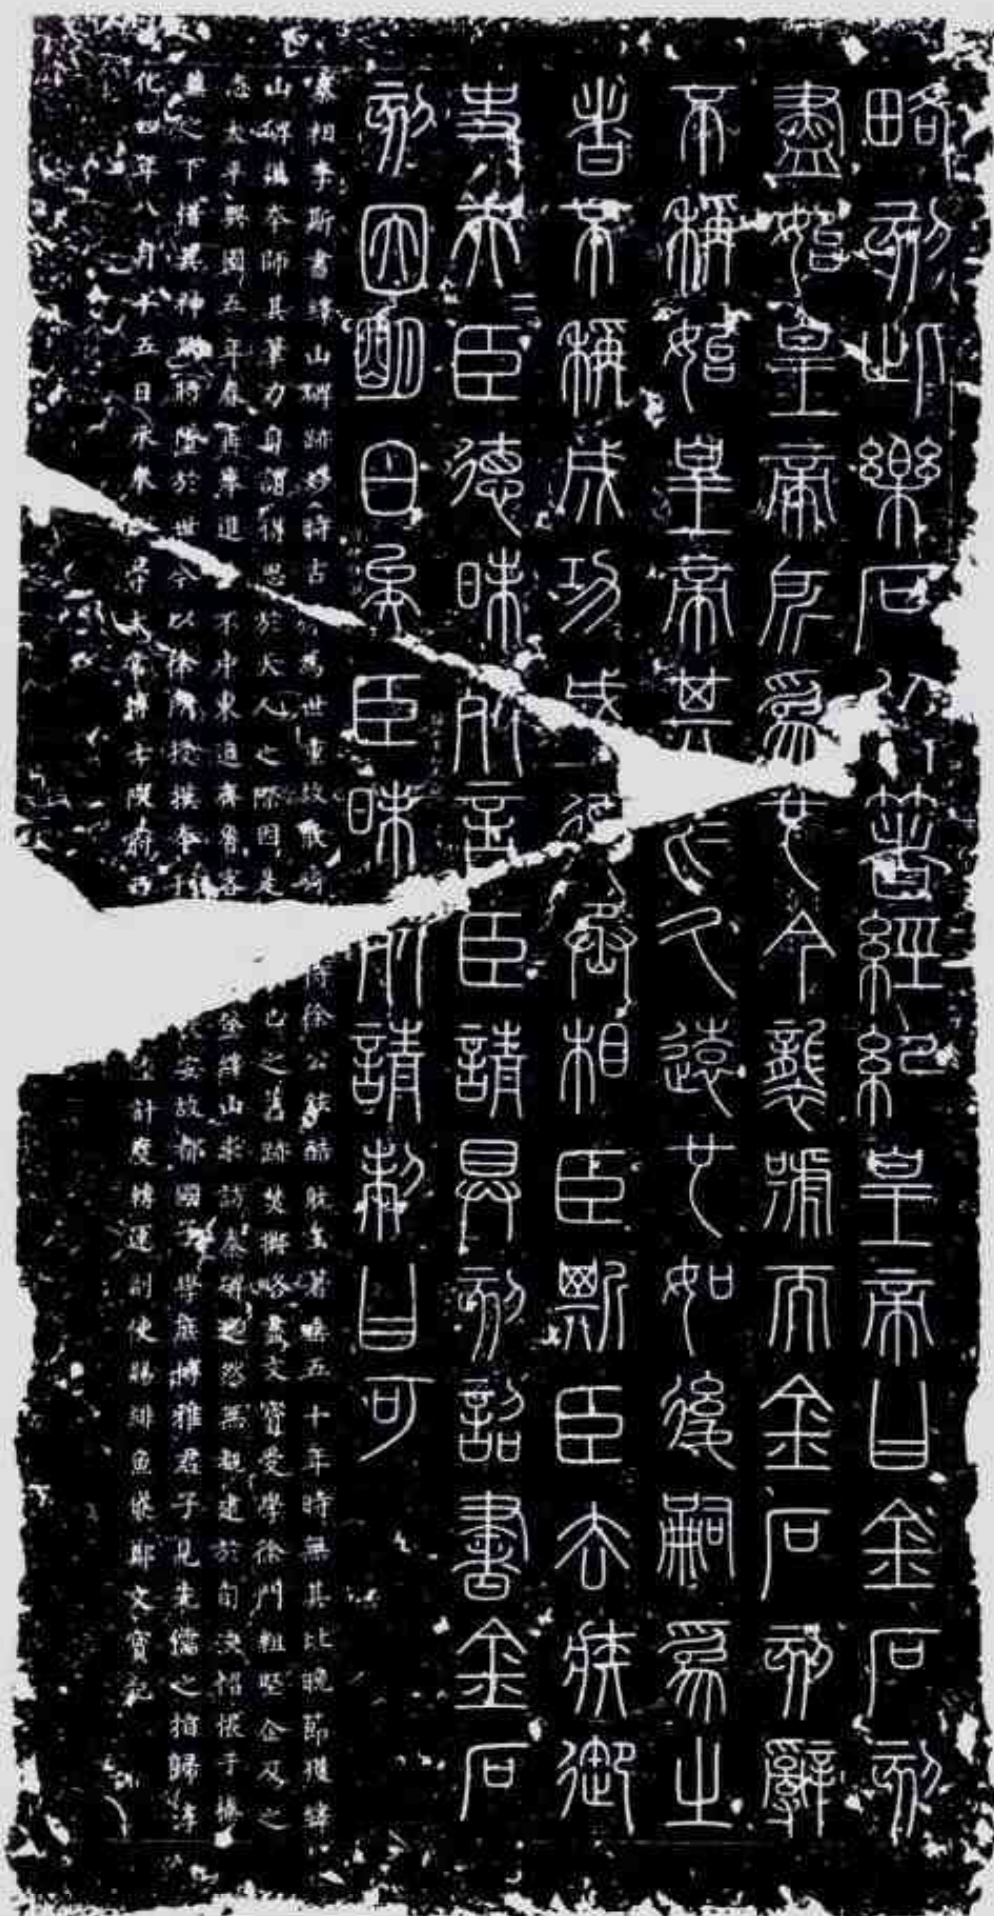 略刻此樂石以著經紀皇帝曰金石刻
盡始皇帝所為也今襲號而金石刻辭
不稱始皇帝其於久遠也如後嗣為之
者不稱成功盛德丞相臣斯臣去疾御
史夫=臣德昧死言臣請具刻詔書金石
刻因明白矣臣昧死請制曰可
秦相李斯書繹山碑跡妙時古為世重故散騎侍徐公鉉酷耽玉箸垂五十年時無其比晚節獲繹
山碑摸本師其筆力自謂得思於天人之際因是己之舊跡焚擲略盡文寶受學徐門粗堅企及之
志太平興國五年春再舉進不中東適齊魯客登繹山求訪秦碑邈然無覩逮於旬浹怊悵于榛
蕪之下惜其神蹤將墜於世今以徐所授摸本刊長安故都國子學庶博雅君子見先儒之指歸淳
化四年八月十五日承奉郎守太常博士陝府西計度轉運副使賜緋魚袋鄭文寶記